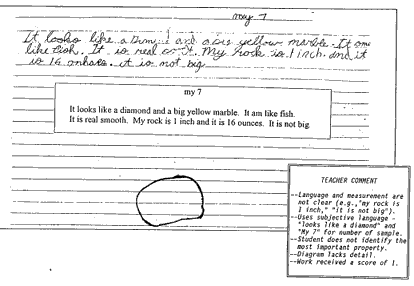 may 7
It looks like a and a big yellow marble. It
like fish. It is real My rock is 1 inch. and it
is 16 it is not big
my 7
It looks like a diamond and a big yellow marble. It am like fish.
It is real smooth. My rock is 1 inch and it is 16 ounces. It is not big.
TEACHER COMMENT
--Language and measurement are
not clear (e.g.,"my rock is
1 inch," "it is not big").
--Uses subjective language -
"looks like a diamond" and
"My 7" for number of sample.
--Student does not identify the
most important property.
--Diagram lacks detail.
--Work received a score of 1.